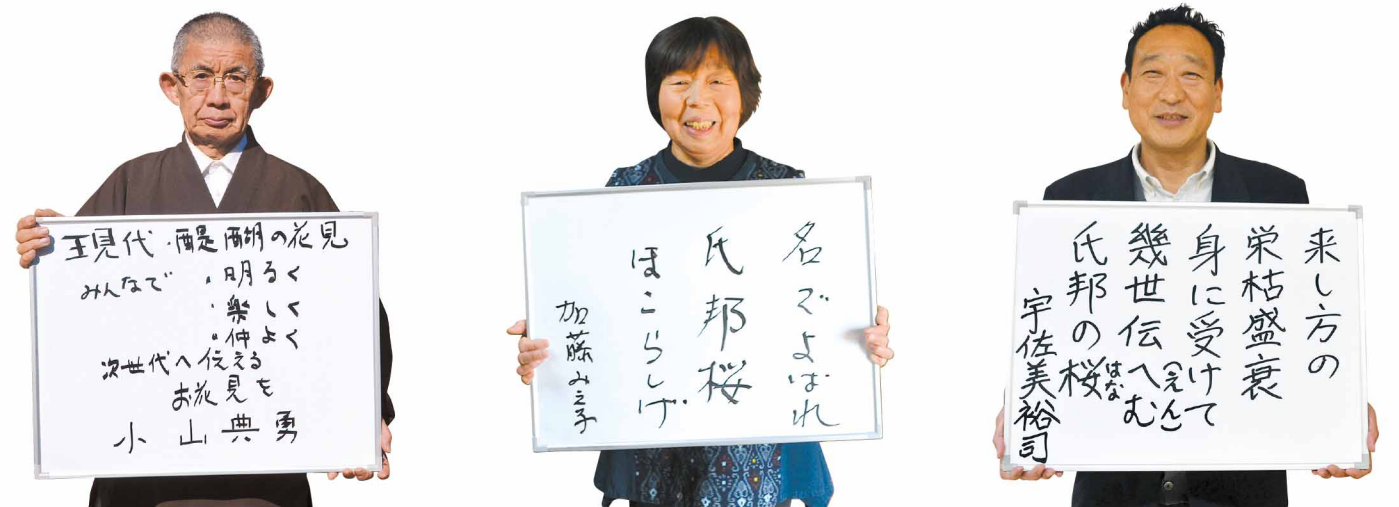 現代・醍醐の花見
みんなで ・明るく
・楽しく
・仲よく
次世代へ伝える
お花見を
小山典勇
名でよばれ
氏邦桜
ほこらしげ
加藤みえ子
来し方の
栄枯盛衰
身に受けて
幾世伝へむ(えん)
氏邦の桜はな
宇佐美裕司